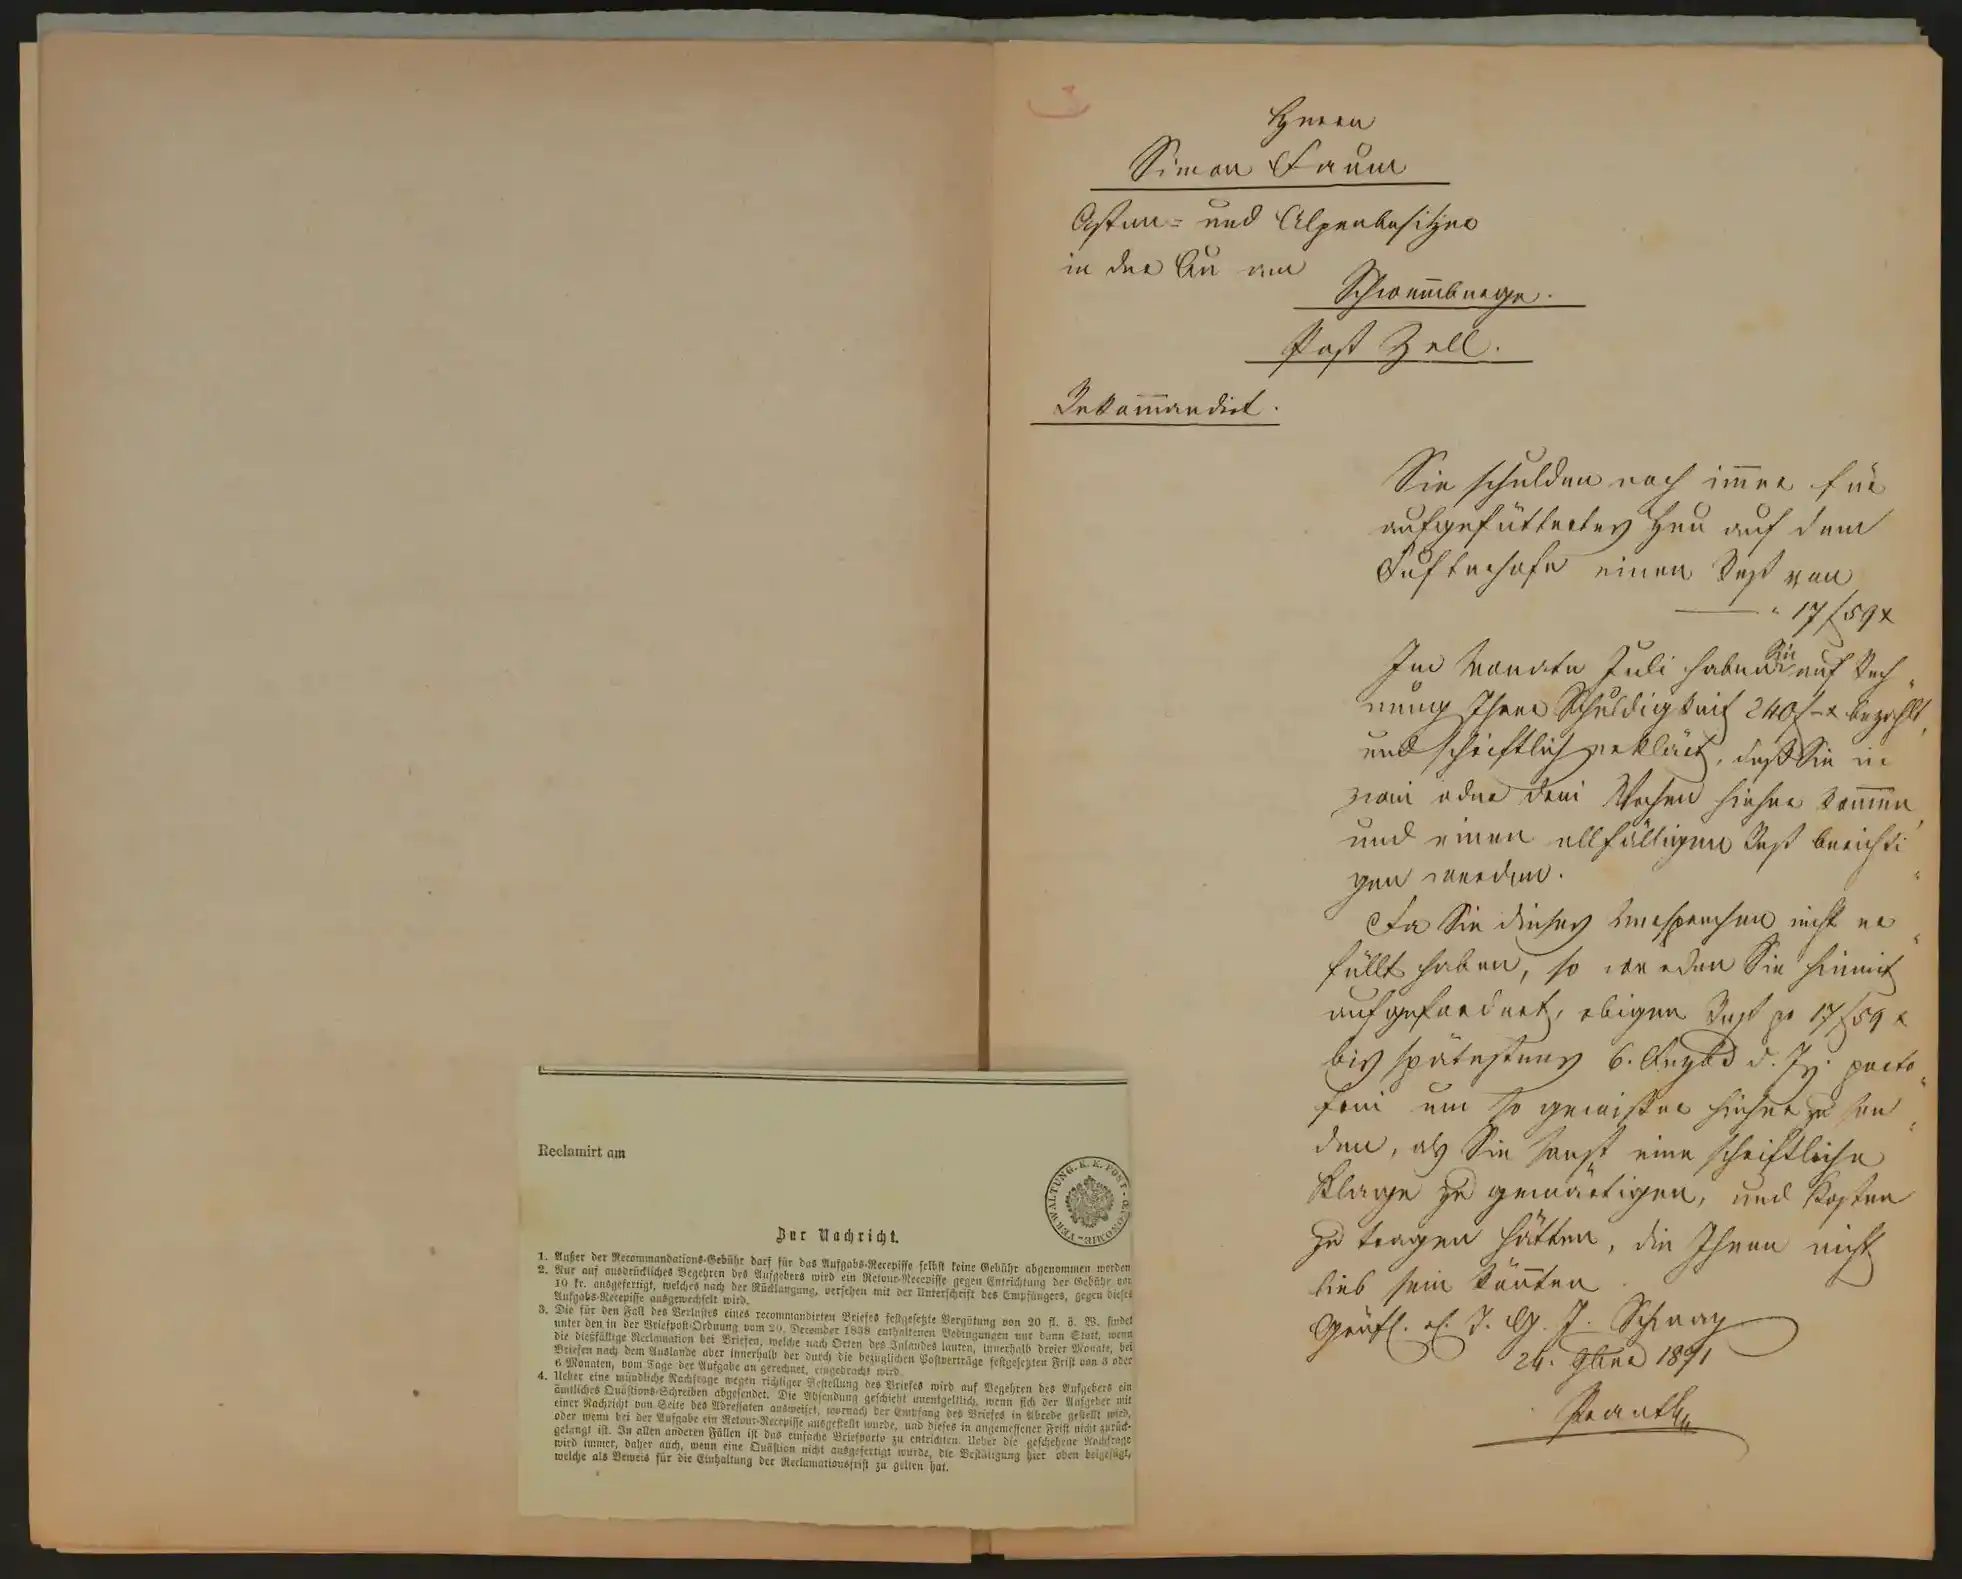 Herrn
Simon Daum
Asten- und Alpenbesitzer
in der Au am
Schwem̅berge.
Post Zell.
Rekom̅andirt.
Sie schulden noch im̅er für
aufgefüttertes Heu auf dem
einen Rest von
" 17 f 59 x
Im Monate Juli haben Sie auf Rech„
nung Ihrer Schuldigkeit 240 f – x bezahlt,
und schriftlich erklärt, daß Sie in
zwei oder drei Wochen hieher kom̅en,
und einen allfälligen Rest berichti„
gen werden.
Da Sie dieses Versprechen nicht er„
füllt haben, so werden Sie hiemit
aufgefordert, obigen Rest pr 17 f 59 x
bis spätestens 6. d. Js. porto„
frei um so gewisser hieher zu sen„
den, als Sie sonst eine schriftliche
Klage zu gewärtigen, und Kosten
zu tragen hätten, die Ihnen nicht
lieb sein kön̅ten.
24. 9bre 1871
Reclamirt am
VERWALTUNG. K. K. POST-OECONOMIE-
Zur Nachricht.
1. Außer der Recommandations-Gebühr darf für das Aufgabs-Recepisse selbst keine Gebühr abgenommen werden
2. Nur auf ausdrückliches Begehren des Aufgebers wird ein Retour-Recepisse gegen Entrichtung der Gebühr von
10 kr. ausgefertigt, welches nach der Rücklangung, versehen mit der Unterschrift des Empfängers, gegen dieses
Aufgabs-Recepisse ausgewechselt wird.
3. Die für den Fall des Verlustes eines recommandirten Briefes festgesetzte Vergütung von 20 fl. ö. W. findet
unter den in der Briefpost-Ordnung vom 20. December 1838 enthaltenen Bedingungen nur dann Statt, wenn
die dießfällige Reclamation bei Briefen, welche nach Orten des Inlandes lauten, innerhalb dreier Monate, bei
Briefen nach dem Auslande aber innerhalb der durch die bezüglichen Postverträge festgesetzten Frist von 3 oder
6 Monaten, vom Tage der Aufgabe an gerechnet, eingebracht wird.
4. Ueber eine mündliche Nachfrage wegen richtiger Bestellung des Briefes wird auf Begehren des Aufgebers ein
ämtliches Quästions-Schreiben abgesendet. Die Absendung geschieht unentgeltlich, wenn sich der Aufgeber mit
einer Nachricht von Seite des Adressaten ausweiset, wornach der Empfang des Briefes in Abrede gestellt wird,
oder wenn bei der Aufgabe ein Retour-Recepisse ausgestellt wurde, und dieses in angemessener Frist nicht zurück-
gelangt ist. In allen anderen Fällen ist das einfache Briefporto zu entrichten. Ueber die geschehene Nachfrage
wird immer, daher auch, wenn eine Quästion nicht ausgefertigt wurde, die Bestätigung hier oben beigefügt,
welche als Beweis für die Einhaltung der Reclamationsfrist zu gelten hat.